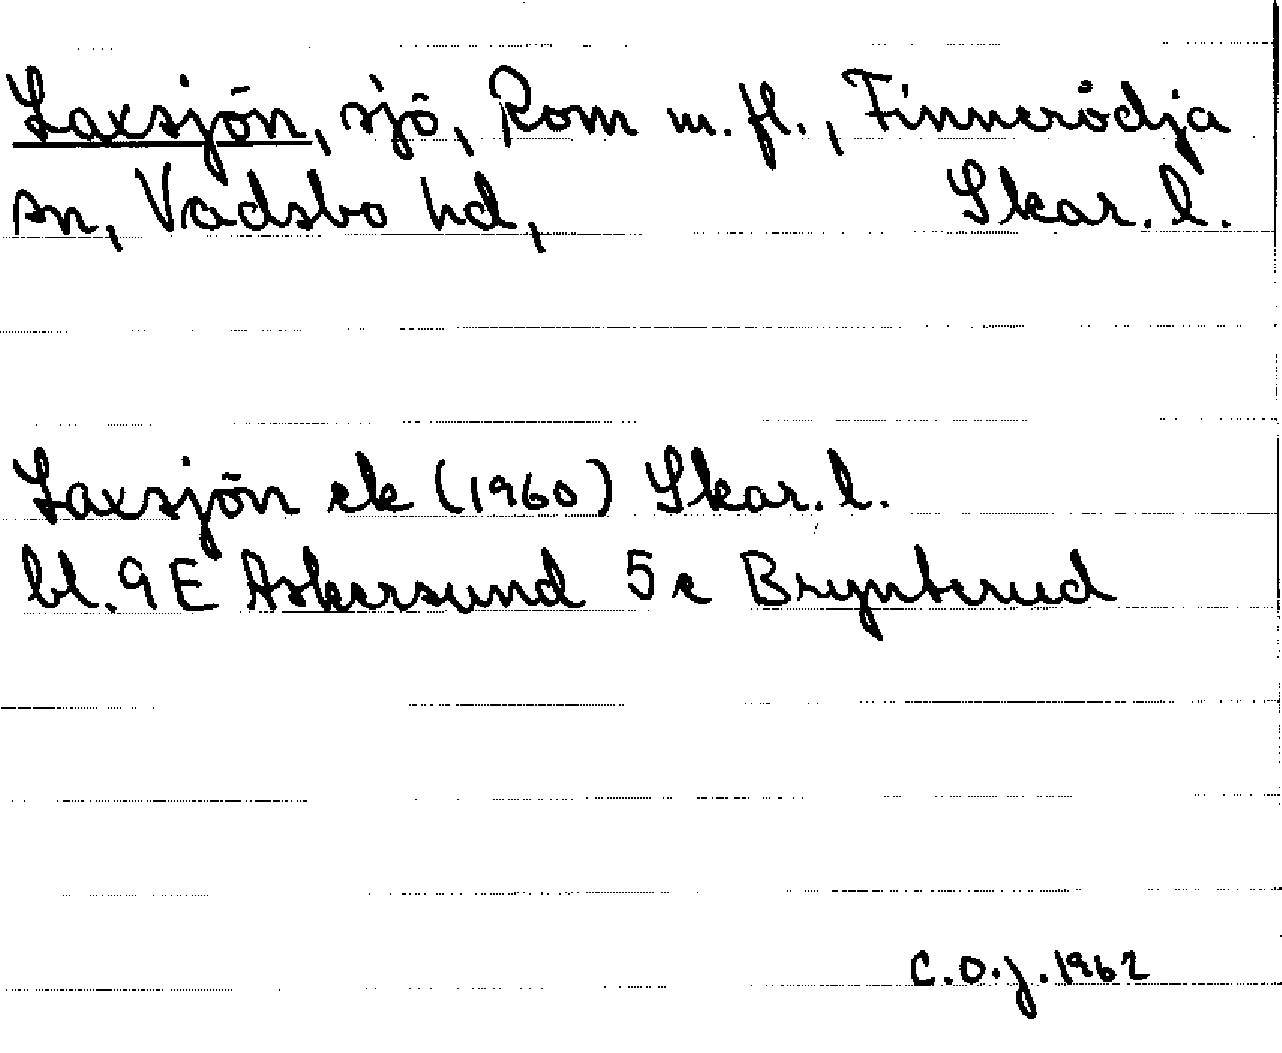 Laxsjön, sjö, Rom m. fl., Finnerödja
sn, Vadsbo hd, Skar. l.
Laxsjön ek (1960) Skar. l.
bl. 9E Askersund 5c Brynterud
C.O.J. 1962